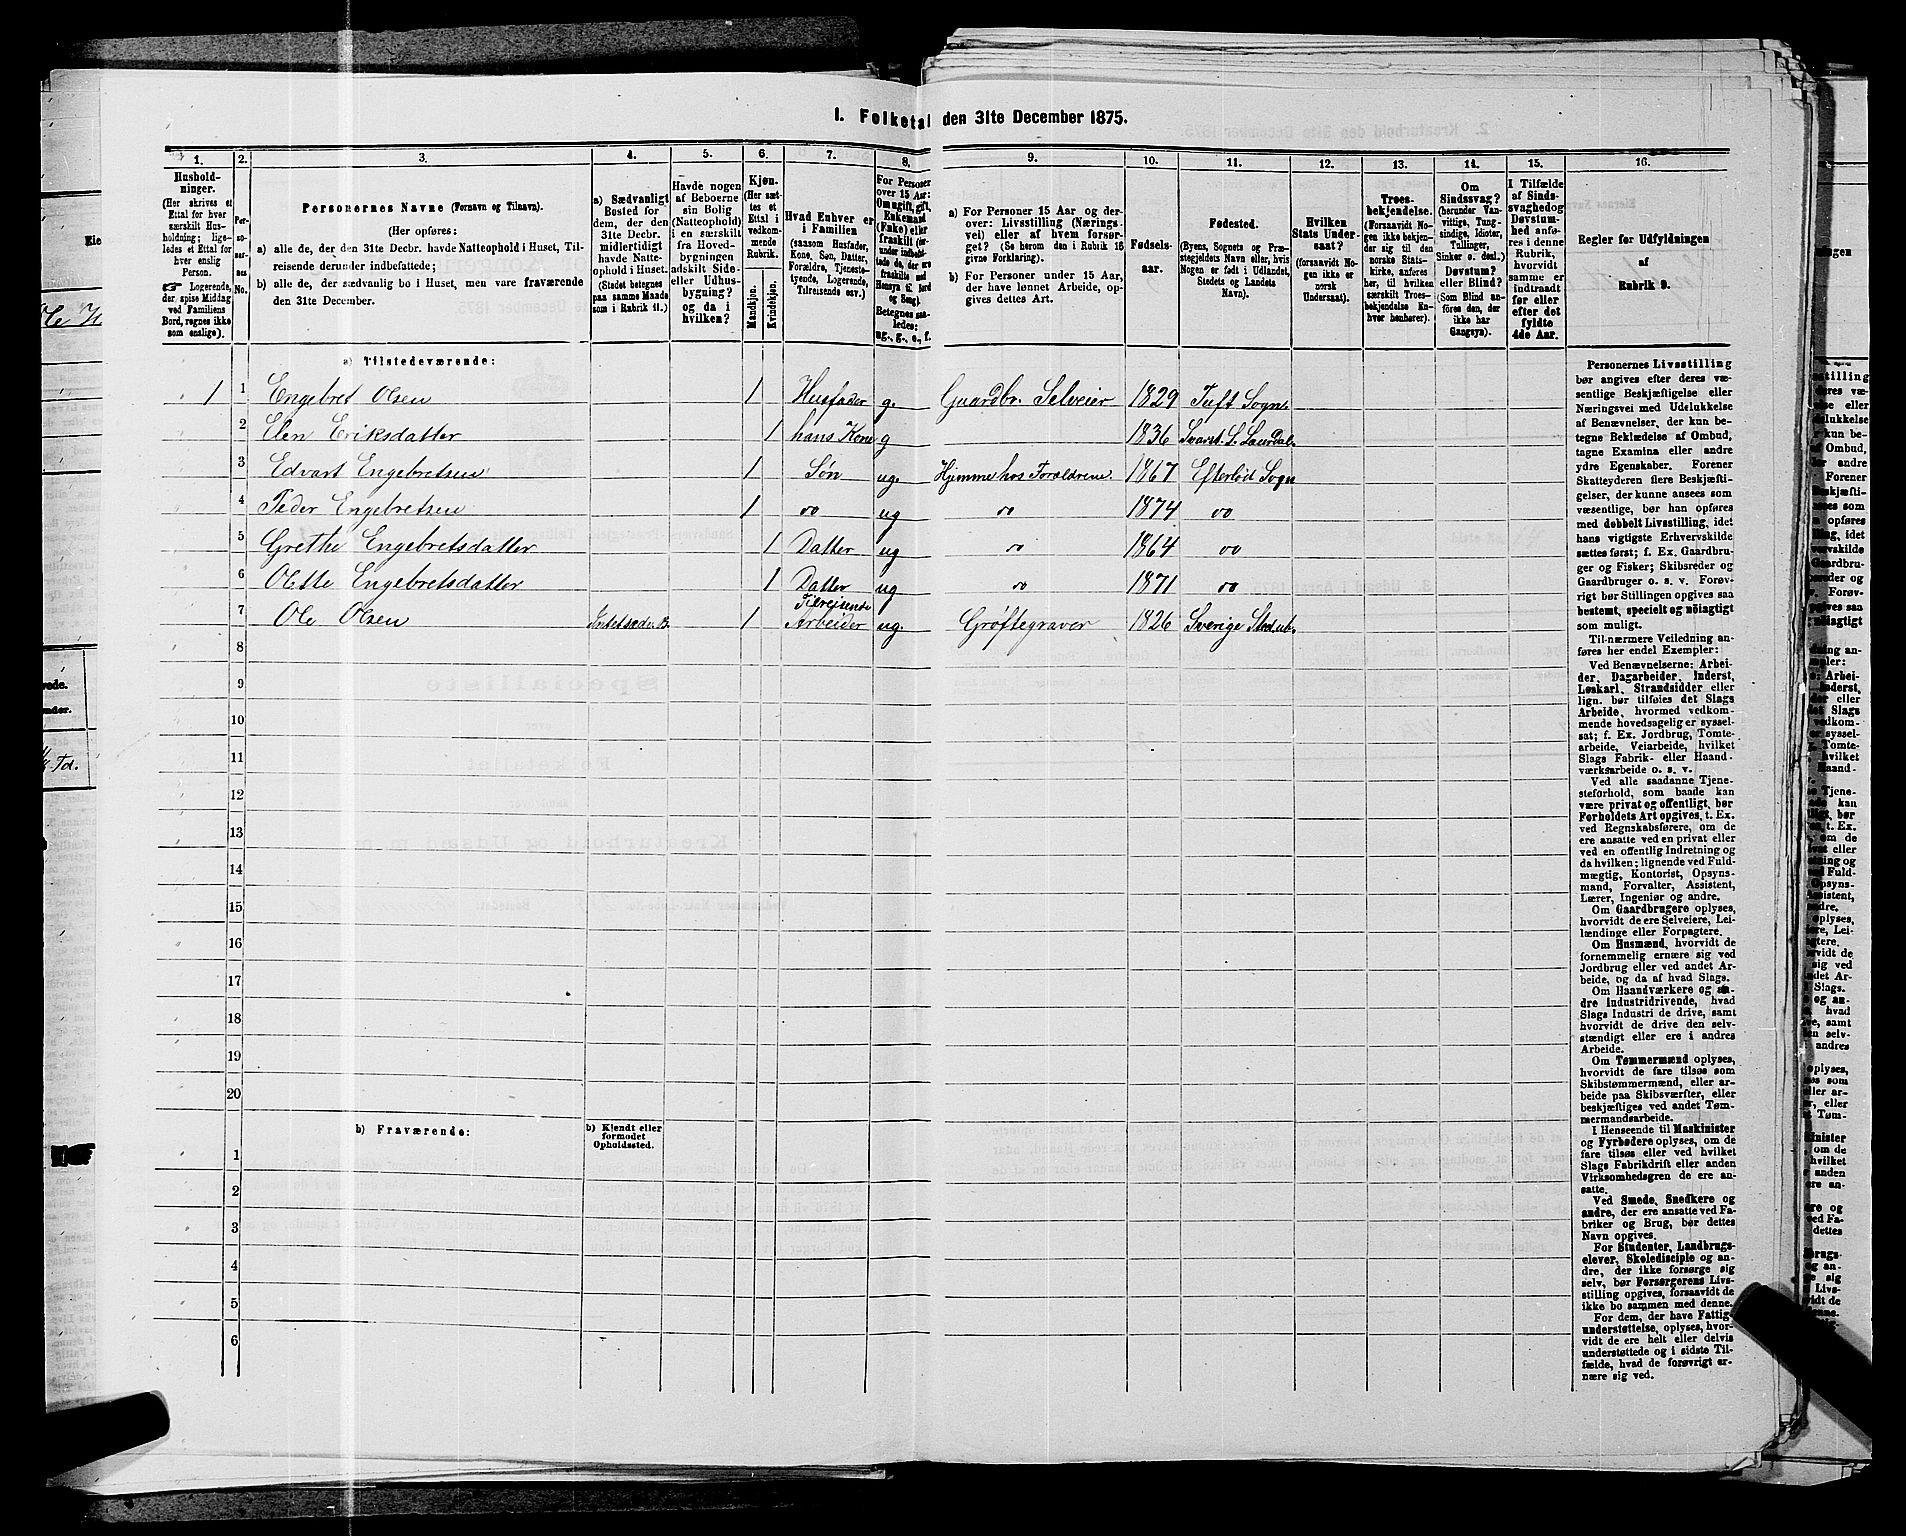 I. Folketal den 31te December 1875.
1. 2. 3. 4. 5. 6. 7. 8. 9. 10. 11. 12. 13. 14. 15. 16.
Husholdninger.
(Her skrives et
Ettal for hver
særskilt Husholdning;
ligeledes et Ettal for
hver enslig
Person.
☞ Logerende,
der spise Middag
ved Familiens
Bord, regnes ikke
som enslige).
Personernes No.
Personernes Navne (Fornavn og Tilnavn).
(Her opføres:
a) alle de, der den 31te Decbr. havde Natteophold i Huset, Tilreisende derunder indbefattede;
b) alle de, der sædvanlig bo i Huset, men vare fraværende
den 31te December.
a) Sædvanligt
Bosted for
dem, der den
31te Decbr.
midlertidigt
havde Natteophold i Huset.
(Stedet betegnes
paa samme Maade
som i Rubrik 11.)
Havde nogen
af Beboerne
sin Bolig
(Natteophold)
i en særskilt
fra Hovedbygningen
adskilt Side-
eller Udhusbygning?
og da i
hvilken?
Kjøn.
(Her sættes et
Ettal i
vedkommende
Rubrik.
Mandkjøn.
Kvindekjøn.
Hvad Enhver er
i Familien
(saasom Husfader,
Kone, Søn, Datter,
Forældre, Tjenestetyende, Logerende,
Tilreisende osv.)
For Personer
over 15 Aar:
Om ugift, gift,
Enkemand
(Enke) eller
fraskilt
Betegnes saaledes:
ug., g., e., f.
a) For Personer 15 Aar og derover: Livsstilling (Næringsvei) eller af hvem forsørget? (Se herom den i Rubrik 16
givne Forklaring).
b) For Personer under 15 Aar,
der have lønnet Arbeide, opgives dettes Art.
Fødselsaar.
Fødested.
(Byens, Sognets og Præstegjeldets Navn eller, hvis
Nogen er født i Udlandet,
Stedets og Landets
Navn).
Hvilken
Stats Undersaat?
(forsaavidt Nogen ikke er
norsk
Undersaat).
Troesbekjendelse.
(Forsaavidt Nogen ikke bekjender sig til
den norske Statskirke, anføres
her, til hvilken
særskilt Troesbekjendelse Enhver henhører).
Om
Sindssvag?
(herunder Vanvittige, Tungsindige, Idioter,
Tullinger,
Sinker o. desl.)
Døvstum?
eller Blind?
(Som Blind anføres den, der
ikke har
Gangsyn).
I Tilfælde
af Sindssvaghed og
Døvstumhed anføres i denne
Rubrik,
hvorvidt
samme er
indtraadt
før eller
efter det
fyldte
4de Aar.
Regler for Udfyldningen
af
Rubrik 9.
a) Tilstedeværende:
1 1 Engebret Olsen 1 Husfader g. Gaardbr. Selveier 1829 Tuft Sogn
2 Elen Eriksdatter 1 hans Kone g 1836 Svarst. S. Laurdal
3 Edvart Engebretsen 1 Søn ug. Hjemme hos Forældrene. 1867 Efterlød Sogn
4 Peder Engebretsen 1 do ug do 1874 do
5 Grethe Engebretsdatter 1 Datter ug do 1864 do
6 Olette Engebretsdatter 1 Datter ug do 1871 do
7 Ole Olsen 1 Tilreisende Arbeider ug. Grøftegraver 1826 Sverige
8
9
10
11
12
13
14
15
16
17
18
19
20
b) Fraværende:
b) Kjendt eller
formodet
Opholdssted.
1
2
3
4
5
6
Personernes Livsstilling
bør angives efter deres væsentlige Beskjæftigelse eller
Næringsvei med Udelukkelse
af Benævnelser, der kun betegne Beklædelse af Ombud,
tagne Examina eller andre
ydre Egenskaber. Forener
Skatteyderen flere Beskjæftigelser, der kunne ansees som
væsentlige, bør han opføres
med dobbelt Livsstilling, idet
hans vigtigste Erhvervskilde
sættes først; f. Ex. Gaardbruger og Fisker; Skibsreder og
Gaardbruger o. s. v. Forøvrigt bør Stillingen opgives saa
bestemt, specielt og nöiagtigt
som muligt.
Til nærmere Veiledning anføres her endel Exempler:
Ved Benævnelserne: Arbeider, Dagarbeider, Inderst,
Løskarl, Strandsidder eller
lign. bør tilføies det Slags
Arbeide, hvormed vedkommende hovedsagelig er sysselsat; f. Ex. Jordbrug, Tomtearbeide, Veiarbeide, hvilket
Slags Fabrik- eller Haandværksarbeide o. s. v.
Ved alle saadanne Tjenesteforhold, som baade kan
være privat og offentligt, bør
Forholdets Art opgives, t. Ex.
ved Regnskabsførere, om de
ere ansatte ved en privat eller
ved en offentlig Indretning og
da hvilken; lignende ved Fuldmægtig, Kontorist, Opsynsmand, Forvalter, Assistent,
Lærer, Ingeniør og andre.
Om Gaardbrugere oplyses,
hvorvidt de ere Selveiere, Leilændinge eller Forpagtere.
Om Husmænd, hvorvidt de
fornemmelig ernære sig ved
Jordbrug eller ved andet Arbeide, og da af hvad Slags.
Om Haandværkere og andre Industridrivende, hvad
Slags Industri de drive, samt
hvorvidt de drive den selvstændigt eller ere i andres
Arbeide.
Om Tømmermænd oplyses,
hvorvidt de fare tilsøs som
Skibstømmermænd, eller arbeide paa Skibsværfter, eller
beskjæftiges ved andet Tømmermandsarbeide.
I Henseende til Maskinister
og Fyrbødere oplyses, om de
fare tilsøs eller ved hvilket
Slags Fabrikdrift eller anden
Virksomhedsgren de ere ansatte.
Ved Smede, Snedkere og
andre, der ere ansatte ved Fabriker og Brug, bør dettes
Navn opgives.
For Studenter, Landbrugselever, Skoledisciple og andre, der ikke forsørge sig
selv, bør Forsørgerens Livsstilling opgives, forsaavidt de
ikke bo sammen med denne.
For dem, der have Fattigunderstøttelse, oplyses, hvorvidt de ere helt eller delvis
understøttede og i sidste Tilfælde, hvad de forøvrigt ernære sig ved.